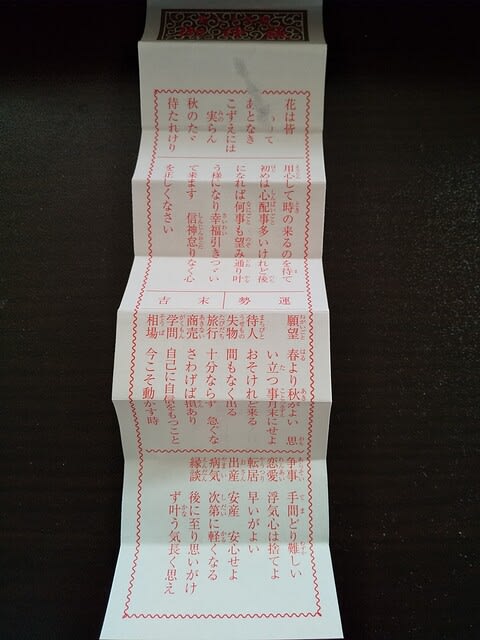 花は皆
て
あとなき
こずえには
実らん
秋のたゞ
待たれけり
用心して時の来るのを待て
初めは心配事多いけれど後
になれば何事も望み通り叶
う様になり幸福引きつゞい
て来ます 信神怠りなく心
を正しくなさい
運勢
末吉
願望 春より秋がよい 思
い立つ事月末にせよ
待人 おそけれど来る
失物 間もなく出る
旅行 十分ならず 急ぐな
商売 さわげば損あり
学問 自己に自信をもつこと
相場 今こそ動かす時
争事 手間どり難しい
恋愛 浮気心は捨てよ
転居 早いがよい
出産 安産 安心せよ
病気 次第に軽くなる
縁談 後に至り思いがけ
ず叶う気長く思え